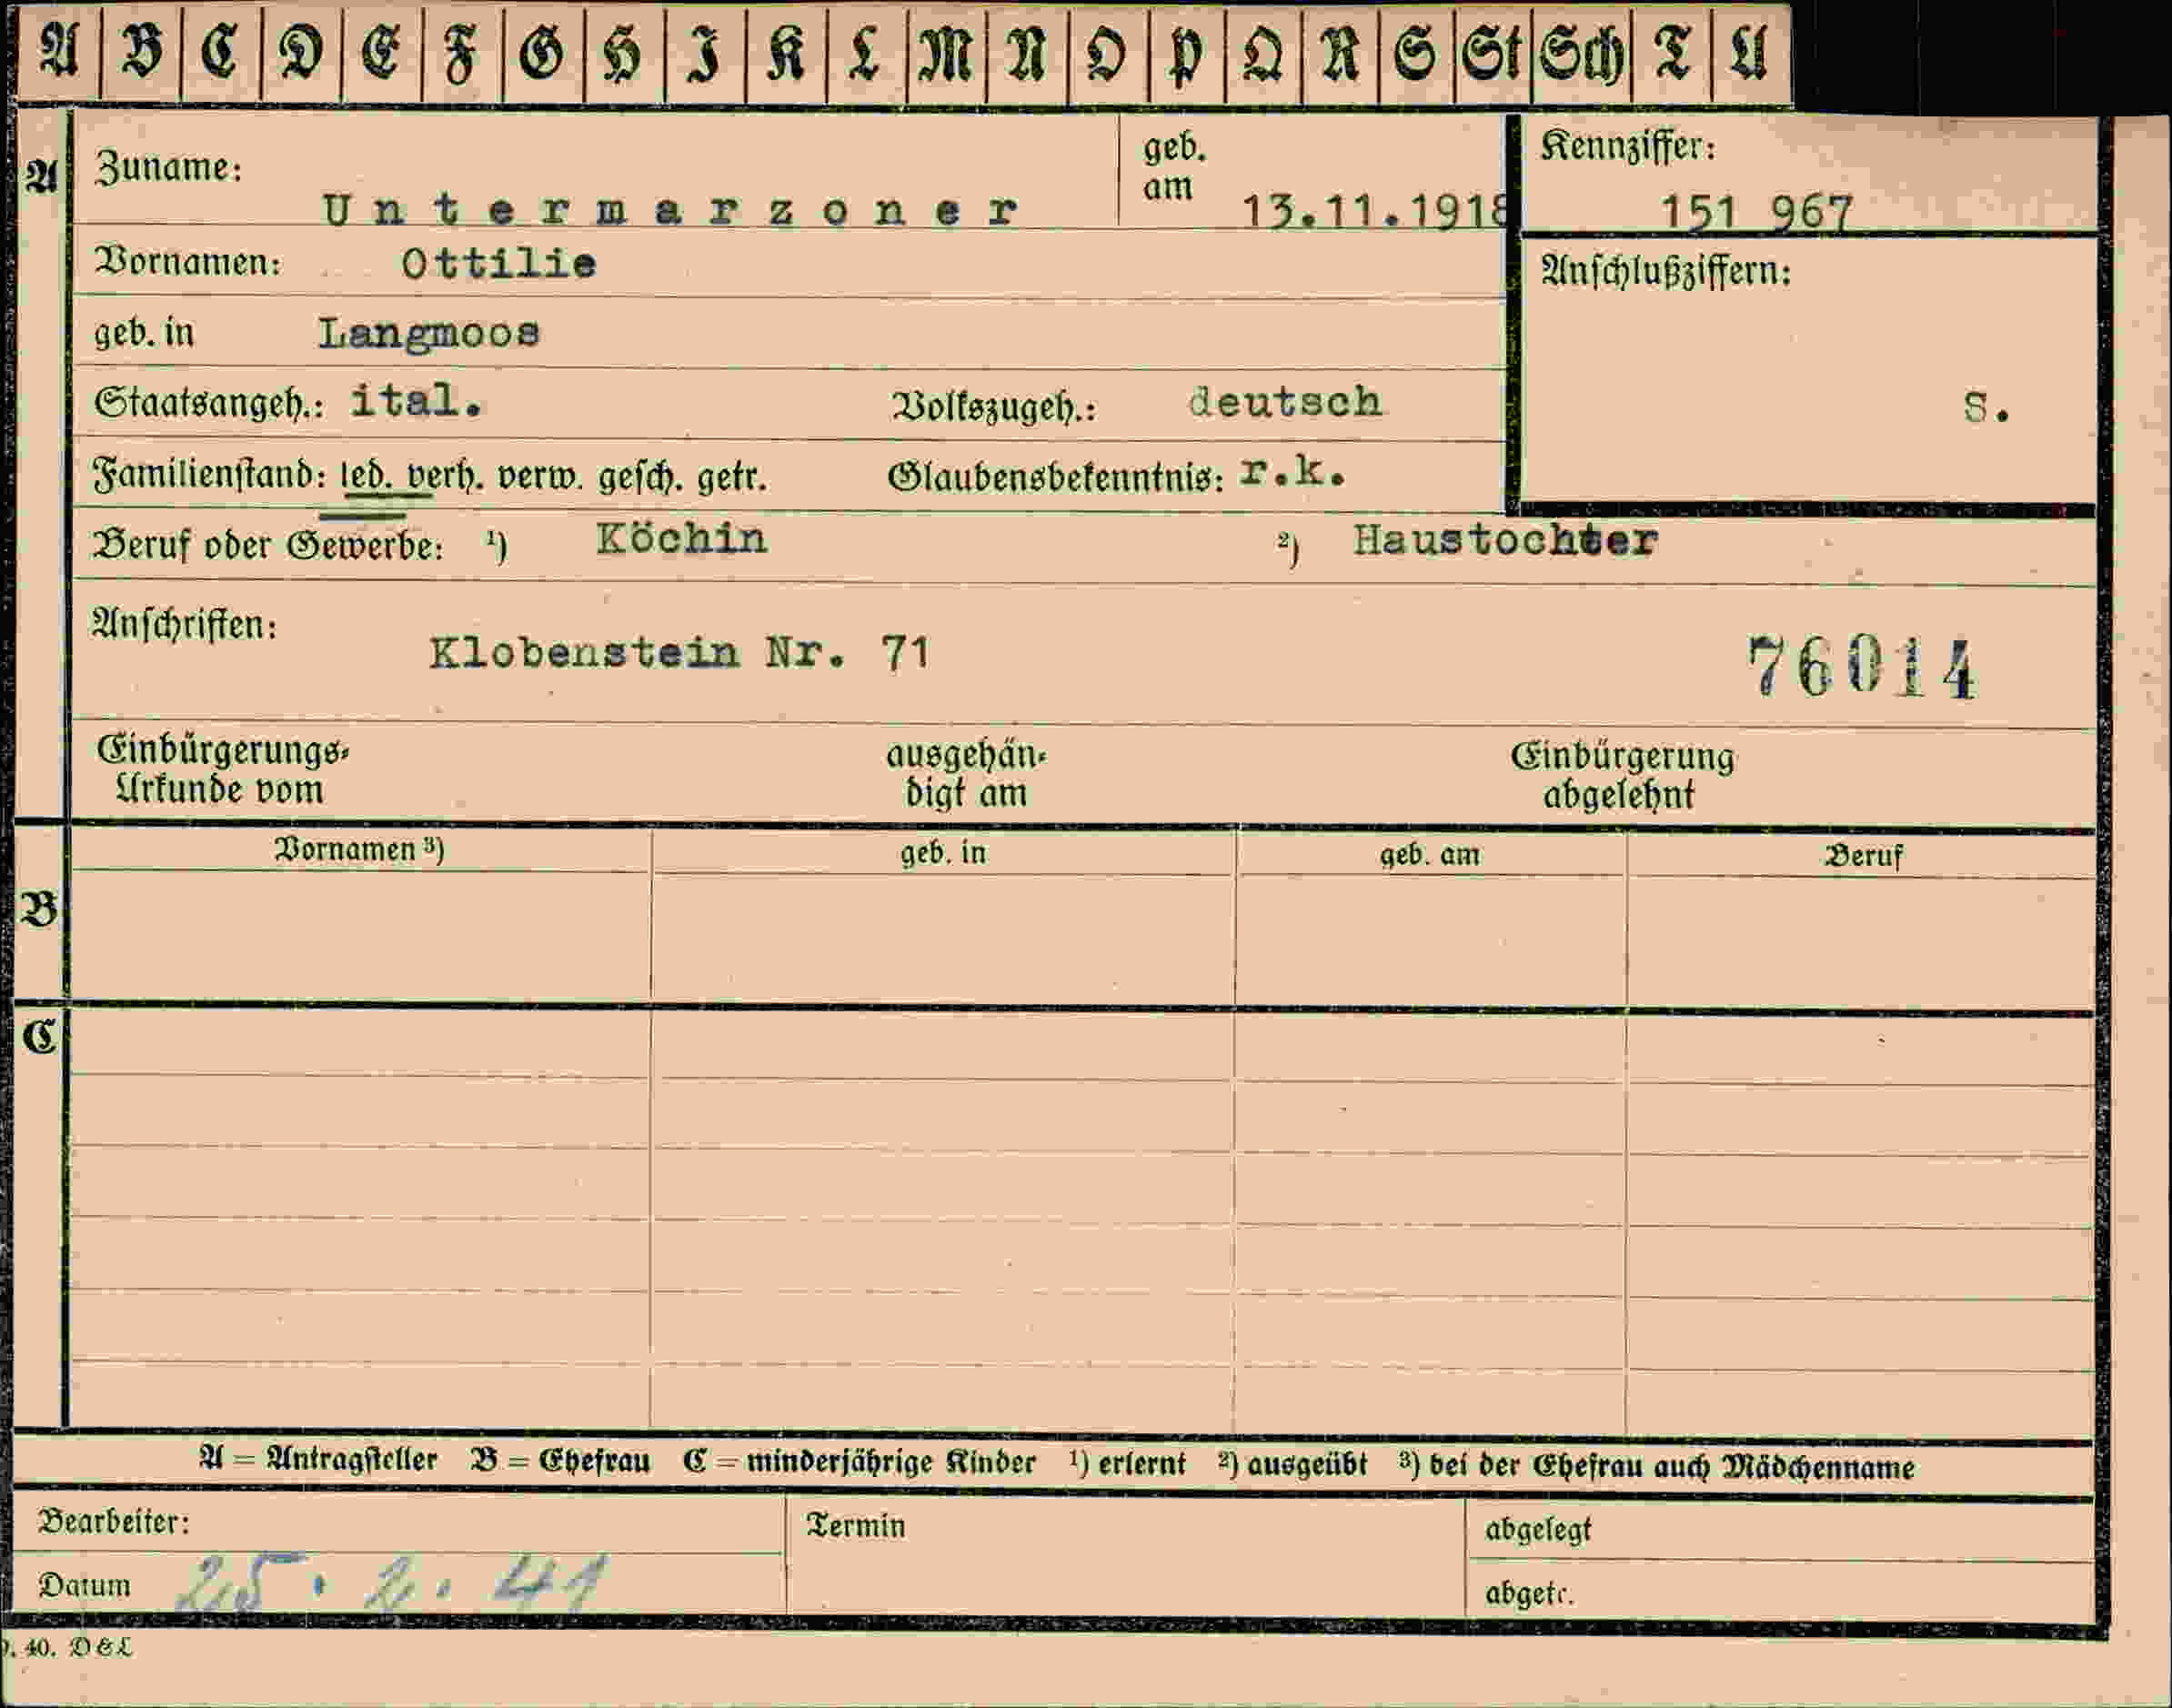 A B C D E F G H I K L M N O P Q R S St Sch T U
A Zuname: Untermarzoner geb. am 13.11.1918 Kennziffer: 151 967
Vornamen: Ottilie Anschlußziffern:
geb. in Langmoos
Staatsangeh.: ital. Volkszugeh.: deutsch S.
Familienstand: led. verh. verw. gesch. getr. Glaubensbekenntnis: r.k.
Beruf oder Gewerbe: ¹) Köchin ²) Haustochter
Anschriften: Klobenstein Nr. 71 76014
Einbürgerungs- ausgehän- Einbürgerung
Urkunde vom digt am abgelehnt
Vornamen ³) geb. in geb. am Beruf
B
C
A = Antragsteller B = Ehefrau C = minderjährige Kinder ¹) erlernt ²) ausgeübt ³) bei der Ehefrau auch Mädchenname
Bearbeiter: Termin abgelegt
Datum 25. 2. 41 abgetr.
. 40. D&L